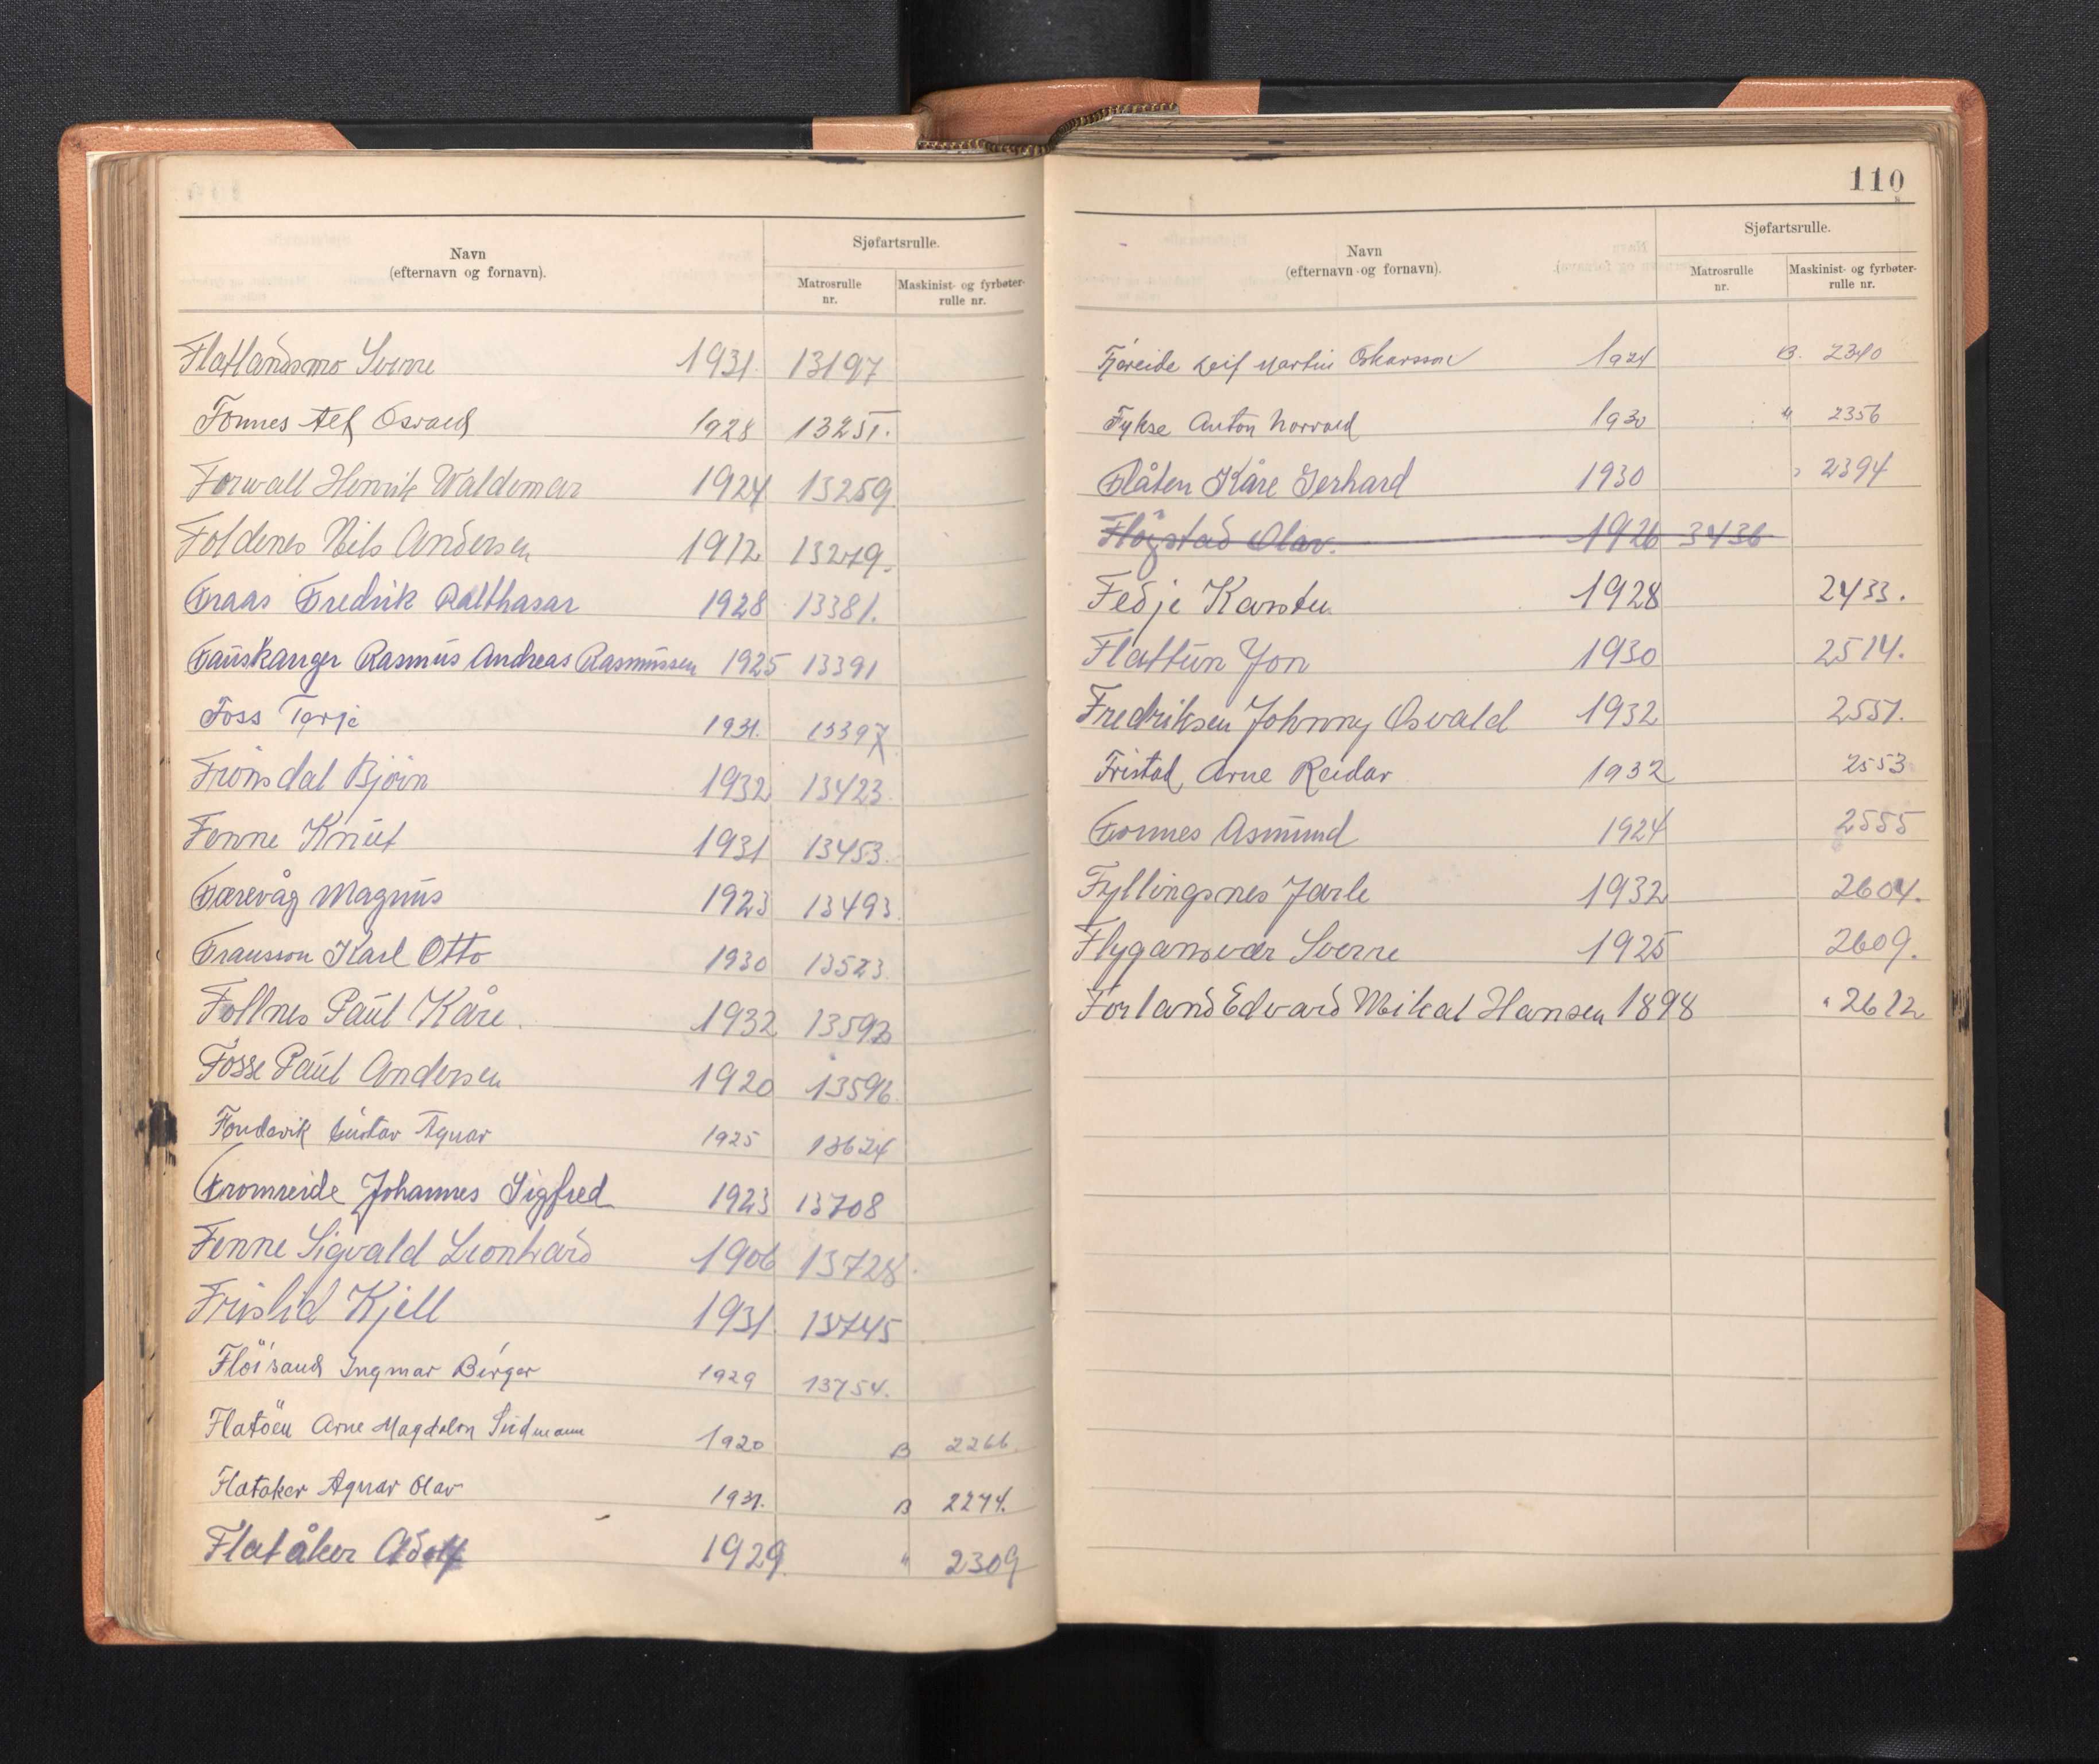 Navn
(efternavn og fornavn).
Sjøfartsrulle.
Matrosrulle
nr.
Maskinist- og fyrbøter-
rulle nr.
Flatlandsmo Sverre 1931. 13197
Fonnes Alf Osvald 1928 13251.
Forwall Henrik Waldemar 1924 13259
Foldenes Nils Andersen 1912 13279.
Fraas Fredrik Balthasar 1928 13381.
Fauskanger Rasmus Andreas Rasmussen 1925 13391
Foss Terje 1931. 13397
Frönsdal Björn 1932 13423
Fenne Knut 1931 13453.
Færevåg Magnus 1923 13493.
Fransson Karl Otto 1930 13523.
Follnes Paul Kåre. 1932 13592
Fosse Paul Andersen 1920 13596.
Fondevik Gustav Agnar 1925 13624
Fromreide Johannes Sigfred 1923 13708
Fenne Sigvald Leonhard 1906 13728.
Frislid Kjell 1931. 13745
Flöisand Ingmar Birger 1929 13754.
Flatöen Arne Magdalon Sudmann 1920 B 2266.
Flataker Agnar Olav 1931. B 2274.
Flatåker Adolf 1929. " 2309
110
Navn
(efternavn og fornavn).
Sjøfartsrulle.
Matrosrulle
nr.
Maskinist- og fyrbøter-
rulle nr.
Fjæreide Leif Martin Oskarsson 1924 B. 2340
Fykse Anton Norvald 1930 " 2356
Flåten Kåre Gerhard 1930 " 2394
Flögstad Olav. 1926 3436
Fedje Karsten 1928 2433.
Flattun Jon 1930 2514.
Fredriksen Johnny Osvald 1932 2551.
Fristad, Arne Reidar 1932 2553
Formes Asmund 1924 2555
Fyllingsnes Jarle 1932 2604.
Flygansvær Sverre 1925 2609.
Forland Edvard Mikal Hansen 1898 " 2612